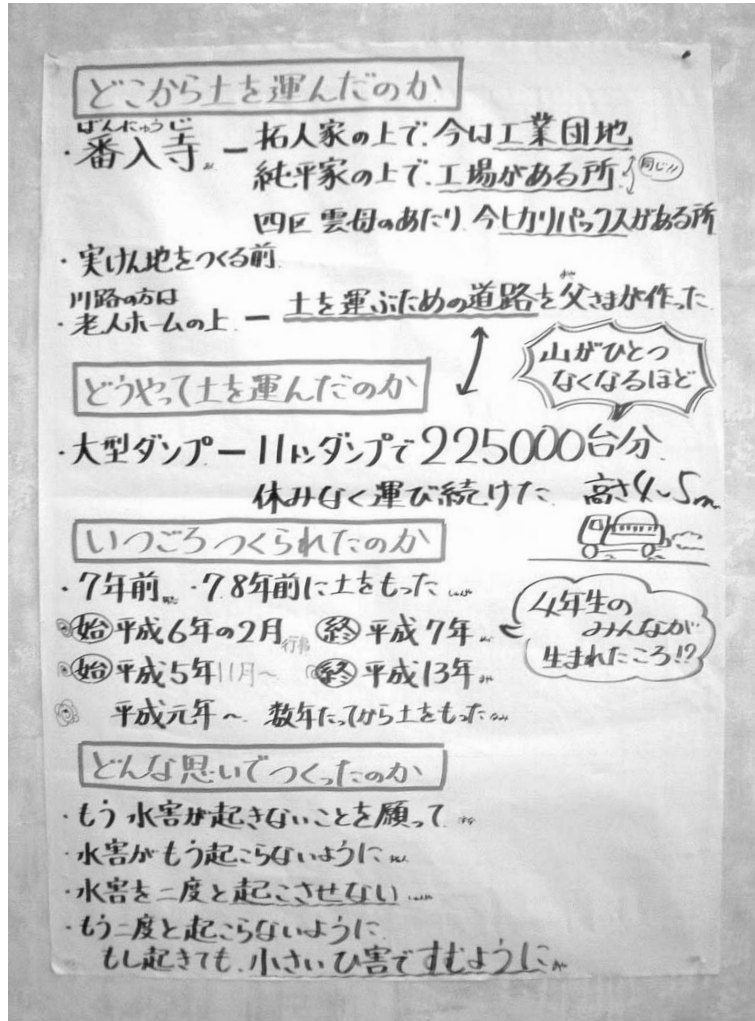 どこから土を運んだのか
ばんにゅうじ
・番入寺 ー 拓人家の上で、今は工業団地
純平家の上で、工場がある所 同じ!!
四区 雲母のあたり、今ヒカリパックスがある所
・実けん地をつくる前
川路の方は
・老人ホームの上 ー 土を運ぶための道路を父さまが作った
山がひとつ
なくなるほど
どうやって土を運んだのか
・大型ダンプー11トンダンプで225000台分
休みなく運び続けた 高さ4~5m
いつごろつくられたのか
・7年前 ・7.8年前に土をもった
始 平成6年の2月 終 平成7年
4年生の
みんなが
生まれたころ!?
始 平成5年11月~ 終 平成13年
平成元年~ 数年たってから土をもった
どんな思いでつくったのか
・もう水害が起きないことを願って
・水害がもう起こらないように
・水害を二度と起こさせない
・もう二度と起こらないように
もし起きても、小さいひ害ですむように